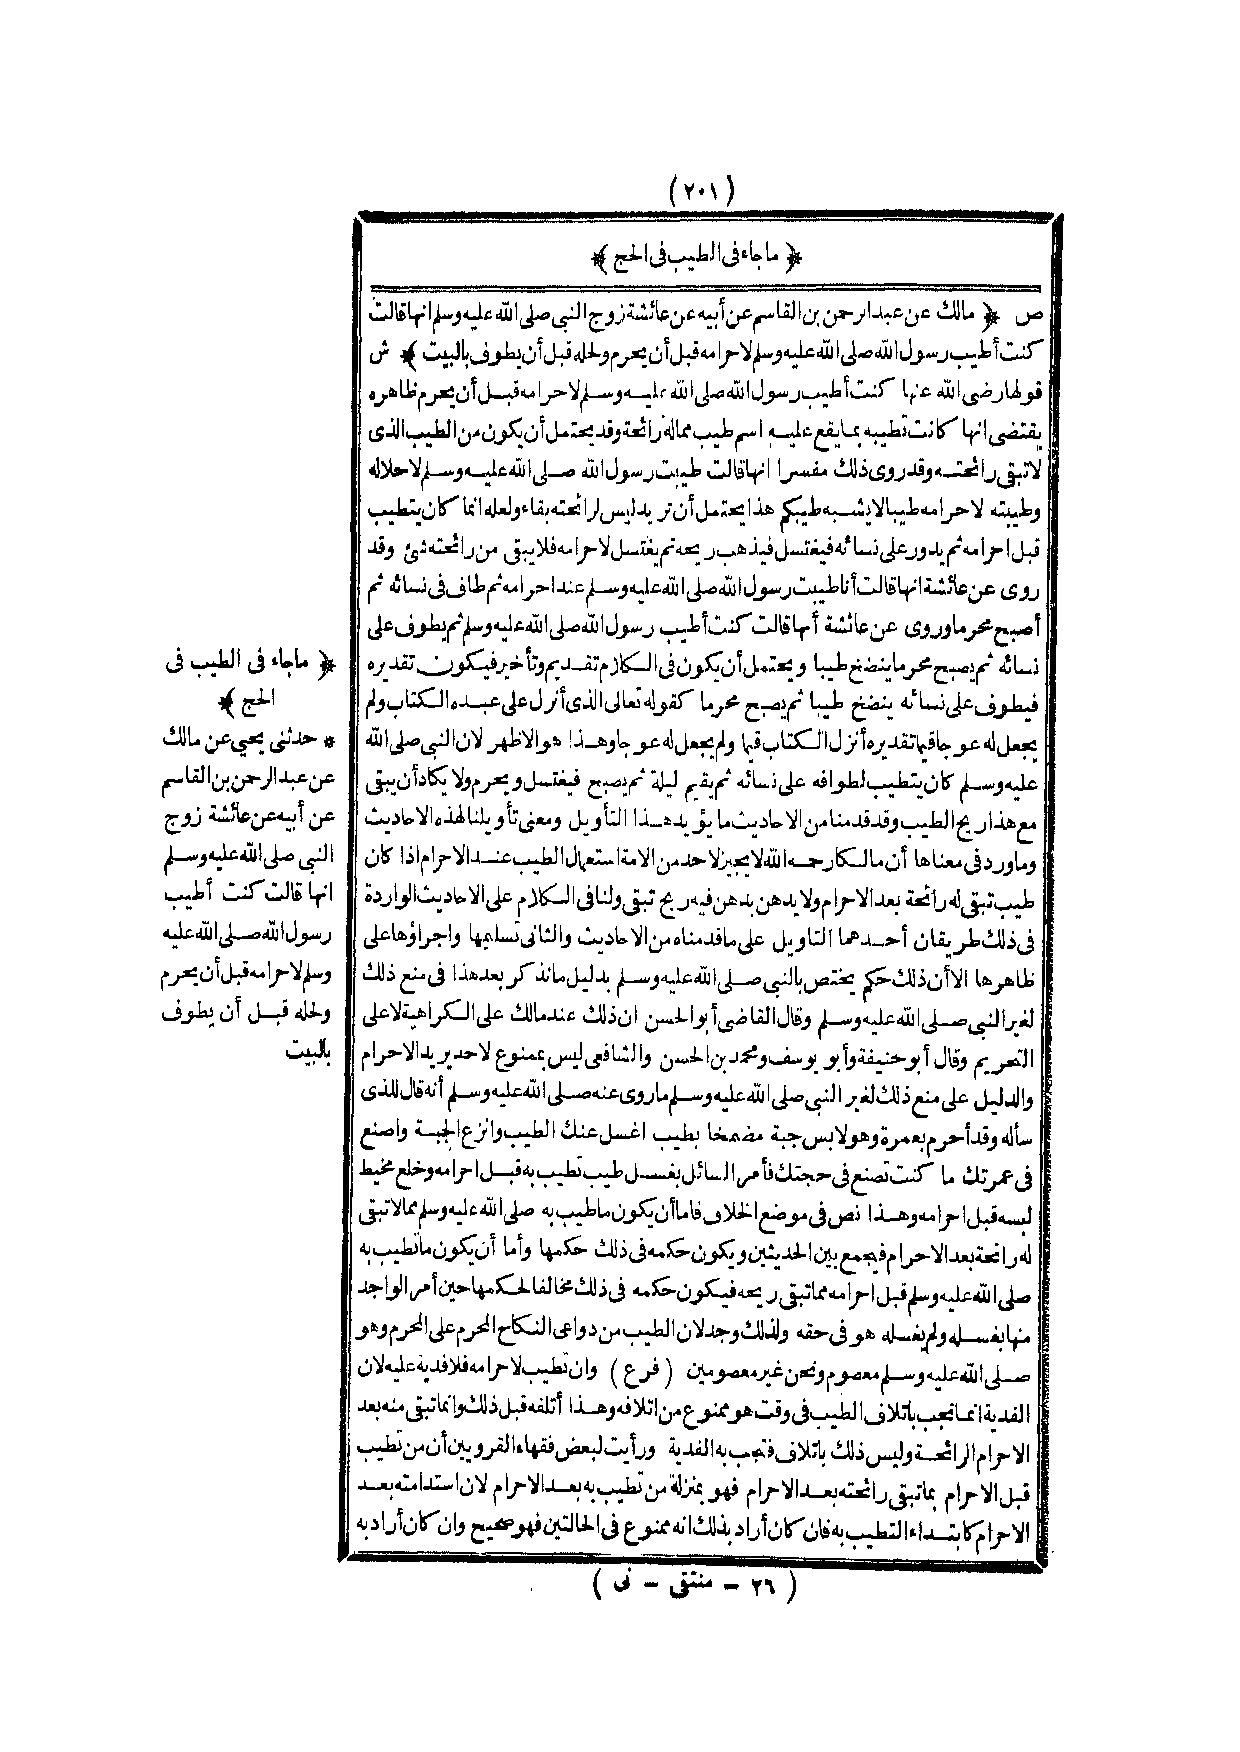 (٢٠١)
﴿ ماجاء فى الطيب فى الحج ﴾
ص ﴿ مالك عن عبد الرحمن بن القاسم عن أبيه عن عائشة زوج النبى صلى الله عليه وسلم انها قالت
كنت أطيب رسول الله صلى الله عليه وسلم لاحرامه قبل أن يحرم ولحله قبل أن يطوف بالبيت ﴾ ش
قولها رضى الله عنها كنت أطيب رسول الله صلى الله عليه وسلم لاحرامه قبل أن يحرم ظاهره
يقتضى انها كانت تطيبه بما يقع عليه اسم طيب مماله رائحة وقد يحتمل أن يكون من الطيب الذى
لا تبقى رائحته وقد روى ذلك مفسرا انها قالت طيبت رسول الله صلى الله عليه وسلم لاحلاله
وطيبته لاحرامه طيبا لا يشبه طيبكم هذا يحتمل أن تريد ليس لرائحته بقاء ولعله انما كان يتطيب
قبل احرامه ثم يدور على نسائه فيغتسل فيذهب ريحه ثم يغتسل لاحرامه فلا يبقى من رائحته شئ وقد
روى عن عائشة انها قالت أنا طيبت رسول الله صلى الله عليه وسلم عند احرامه ثم طاف فى نسائه ثم
أصبح محرما وروى عن عائشة أنها قالت كنت أطيب رسول الله صلى الله عليه وسلم ثم يطوف على
نسائه ثم يصبح محرما ينضخ طيبا ويحتمل أن يكون فى الكلام تقديم وتأخير فيكون تقديره
فيطوف على نسائه ينضخ طيبا ثم يصبح محرما كقوله تعالى الذى أنزل على عبده الكتاب ولم
يجعل له عوجا قيما تقديره أنزل الكتاب قيما ولم يجعل له عوجا وهذا هو الاظهر لان النبى صلى الله
عليه وسلم كان يتطيب لطوافه على نسائه ثم يقيم ليلة ثم يصبح فيغتسل ويحرم ولا يكاد أن يبقى
مع هذا ريح الطيب وقد قدمنا من الاحاديث ما يؤيد هذا التأويل ومعنى تأويلنا لهذه الاحاديث
وما ورد فى معناها أن مالكا رحمه الله لا يجيز لاحد من الامة استعمال الطيب عند الاحرام اذا كان
طيب تبقى له رائحة بعد الاحرام ولا يدهن بدهن فيه ريح تبقى ولنا فى الكلام على الاحاديث الواردة
فى ذلك طريقان أحدهما التاويل على ما قدمناه من الاحاديث والثانى تسليمها واجراؤها على
ظاهرها الا أن ذلك حكم يختص بالنبى صلى الله عليه وسلم بدليل ما نذكر بعد هذا فى منع ذلك
لغير النبى صلى الله عليه وسلم وقال القاضى أبو الحسن ان ذلك عند مالك على الكراهية لا على
التحريم وقال أبو حنيفة وأبو يوسف ومحمد بن الحسن والشافعى ليس بممنوع لاحد يريد الاحرام
والدليل على منع ذلك لغير النبى صلى الله عليه وسلم ما روى عنه صلى الله عليه وسلم أنه قال للذى
سأله وقد أحرم بعمرة وهو لابس جبة مضمخا بطيب اغسل عنك الطيب وانزع الجبة واصنع
فى عمرتك ما كنت تصنع فى حجتك فأمر السائل بغسل طيب تطيب به قبل احرامه وخلع مخيط
لبسه قبل احرامه وهذا نص فى موضع الخلاف فاما أن يكون ما طيب به صلى الله عليه وسلم مما لا تبقى
له رائحة بعد الاحرام فيجمع بين الحديثين ويكون حكمه فى ذلك حكمها وأما أن يكون ما تطيب به
صلى الله عليه وسلم قبل احرامه مما تبقى ريحه فيكون حكمه فى ذلك مخالفا لحكمها حين أمر الواجد
منها بغسله ولم يغسله هو فى حقه ولذلك وجد لان الطيب من دواعى النكاح المحرم على المحرم وهو
صلى الله عليه وسلم معصوم ونحن غير معصومين ( فرع ) وان تطيب لاحرامه فلا فدية عليه لان
الفدية انما تجب باتلاف الطيب فى وقت هو ممنوع من اتلافه وهذا أتلفه قبل ذلك وانما تبقى منه بعد
الاحرام الرائحة وليس ذلك باتلاف فتجب به الفدية ورأيت لبعض فقهاء القرويين أن من تطيب
قبل الاحرام بما تبقى رائحته بعد الاحرام فهو بمنزلة من تطيب به بعد الاحرام لان استدامته بعد
الاحرام كابتداء التطيب به فان كان أراد بذلك انه ممنوع فى الحالتين فهو صحيح وان كان أراد به
﴿ ماجاء فى الطيب فى
الحج ﴾
* حدثنى يحيى عن مالك
عن عبد الرحمن بن القاسم
عن أبيه عن عائشة زوج
النبى صلى الله عليه وسلم
انها قالت كنت أطيب
رسول الله صلى الله عليه
وسلم لاحرامه قبل أن يحرم
ولحله قبل أن يطوف
بالبيت
( ٢٦ - منتقى - نى )